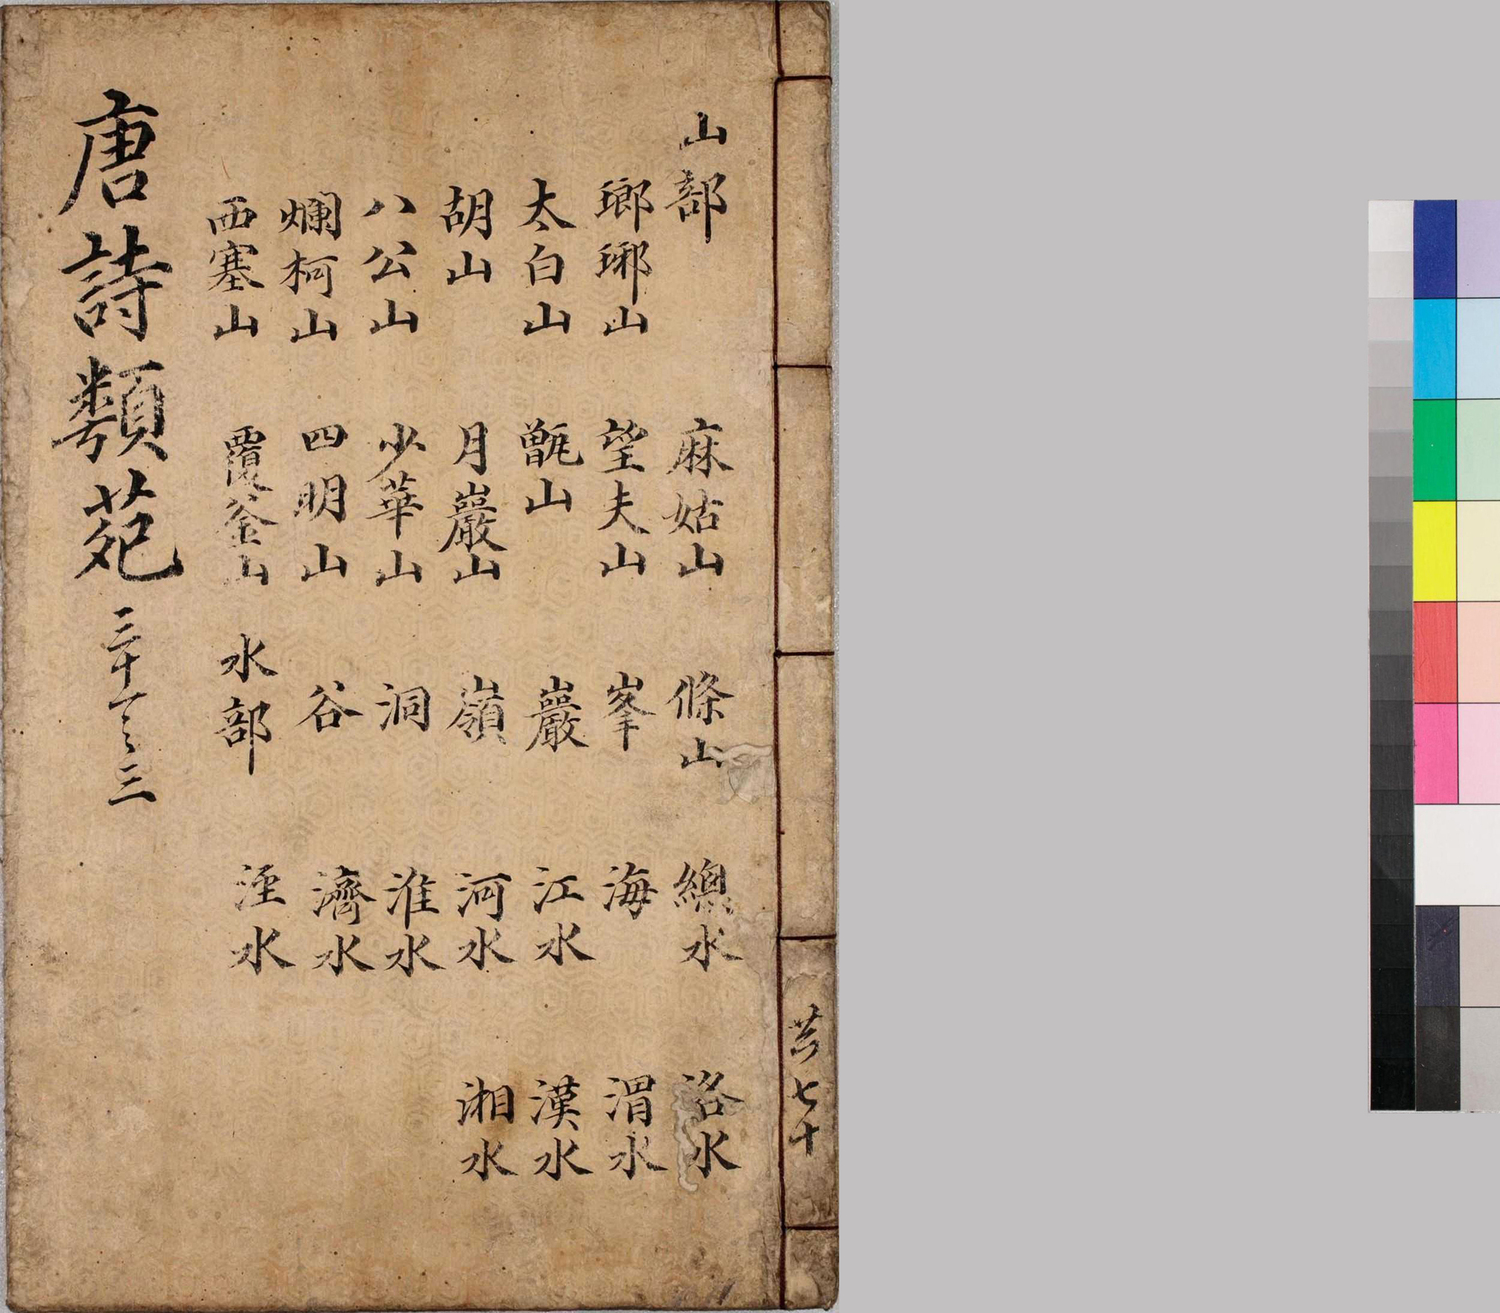 共七十
山部
瑯琊山
太白山
胡山
八公山
爛柯山
西塞山
麻姑山
望夫山
甑山
月巖山
少華山
四明山
覆釜山
條山
峯
巖
嶺
洞
谷
水部
總水
海
江水
河水
淮水
濟水
涇水
洛水
渭水
漢水
湘水
唐詩類苑